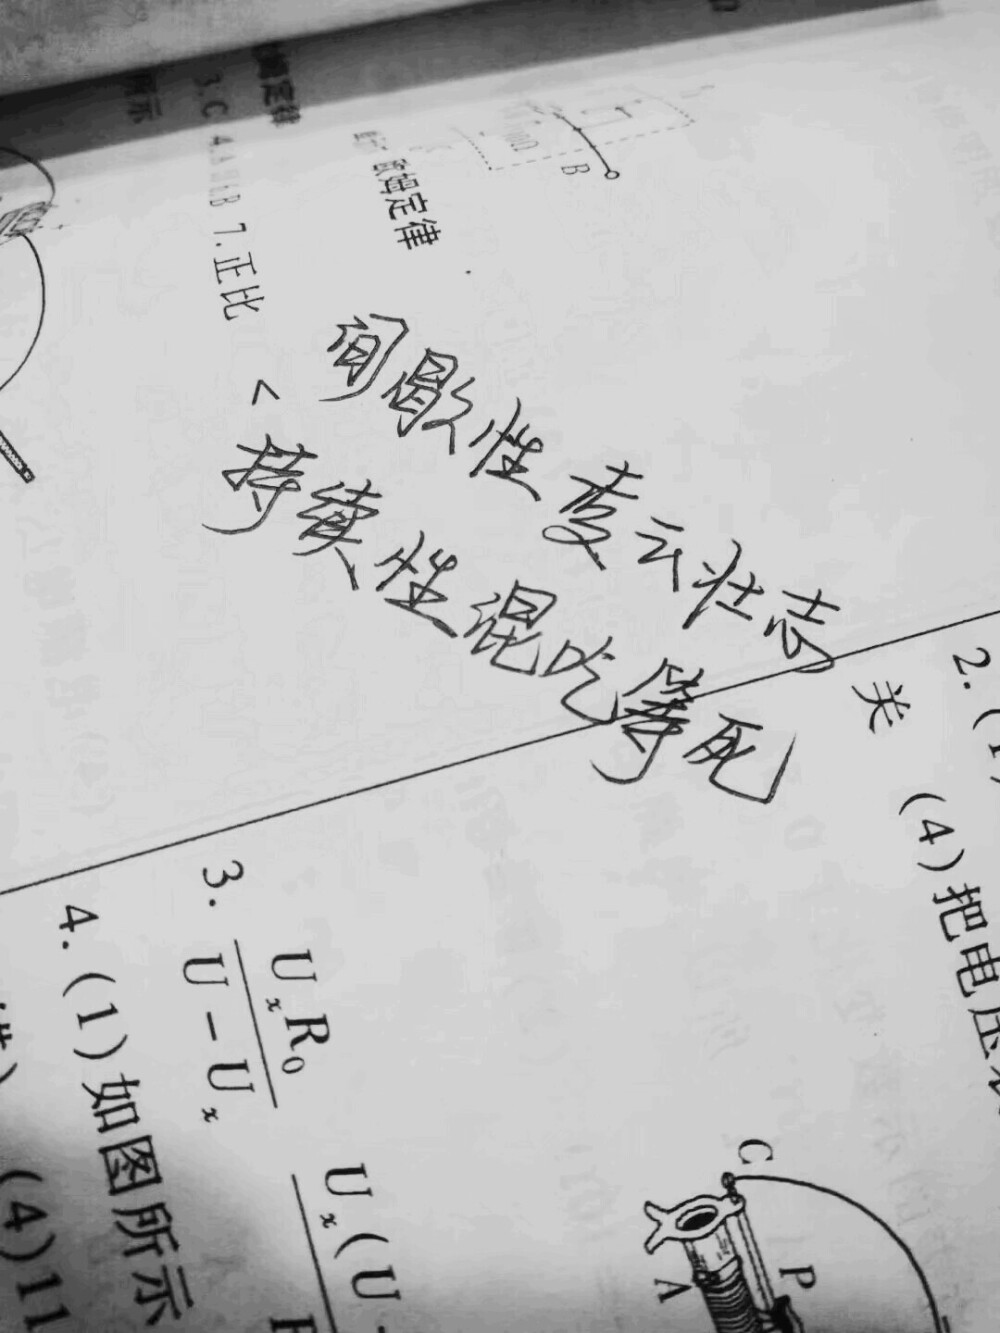 欧姆定律
B
7.正比
<
间歇性凌云壮志
持续性混吃等死
2.(1)
关 (4)把电压
3. UₓR₀ / U－Uₓ Uₓ(U－
4.(1)如图所示
(4)11
C
P
A